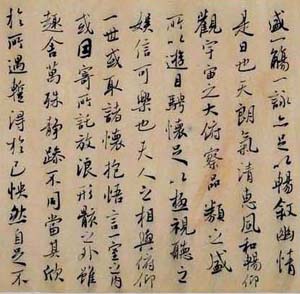 盛一觴一詠亦足以暢叙幽情
是日也天朗氣清惠風和暢仰
觀宇宙之大俯察品類之盛
所以遊目騁懷足以極視聽之
娛信可樂也夫人之相與俯仰
一世或取諸懷抱悟言一室之內
或因寄所託放浪形骸之外雖
趣舍萬殊静躁不同當其欣
於所遇暫得於己怏然自足不